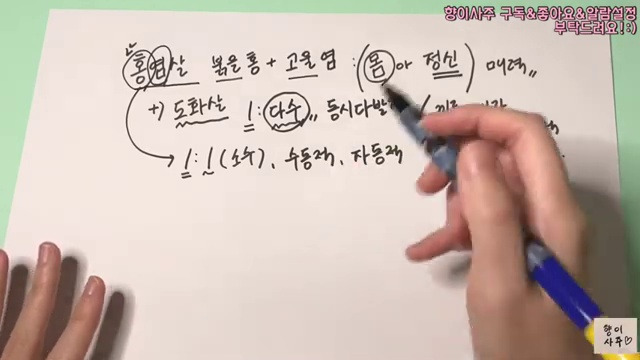 향이사주 구독&좋아요&알람설정
부탁드려요!:)
홍염살 붉을홍+고울염 : (몸 아 정신) 매력,,
+) 도화살 1:다수,, 동시다발
1:1(소수), 수동적, 자동적
향이
사주♡